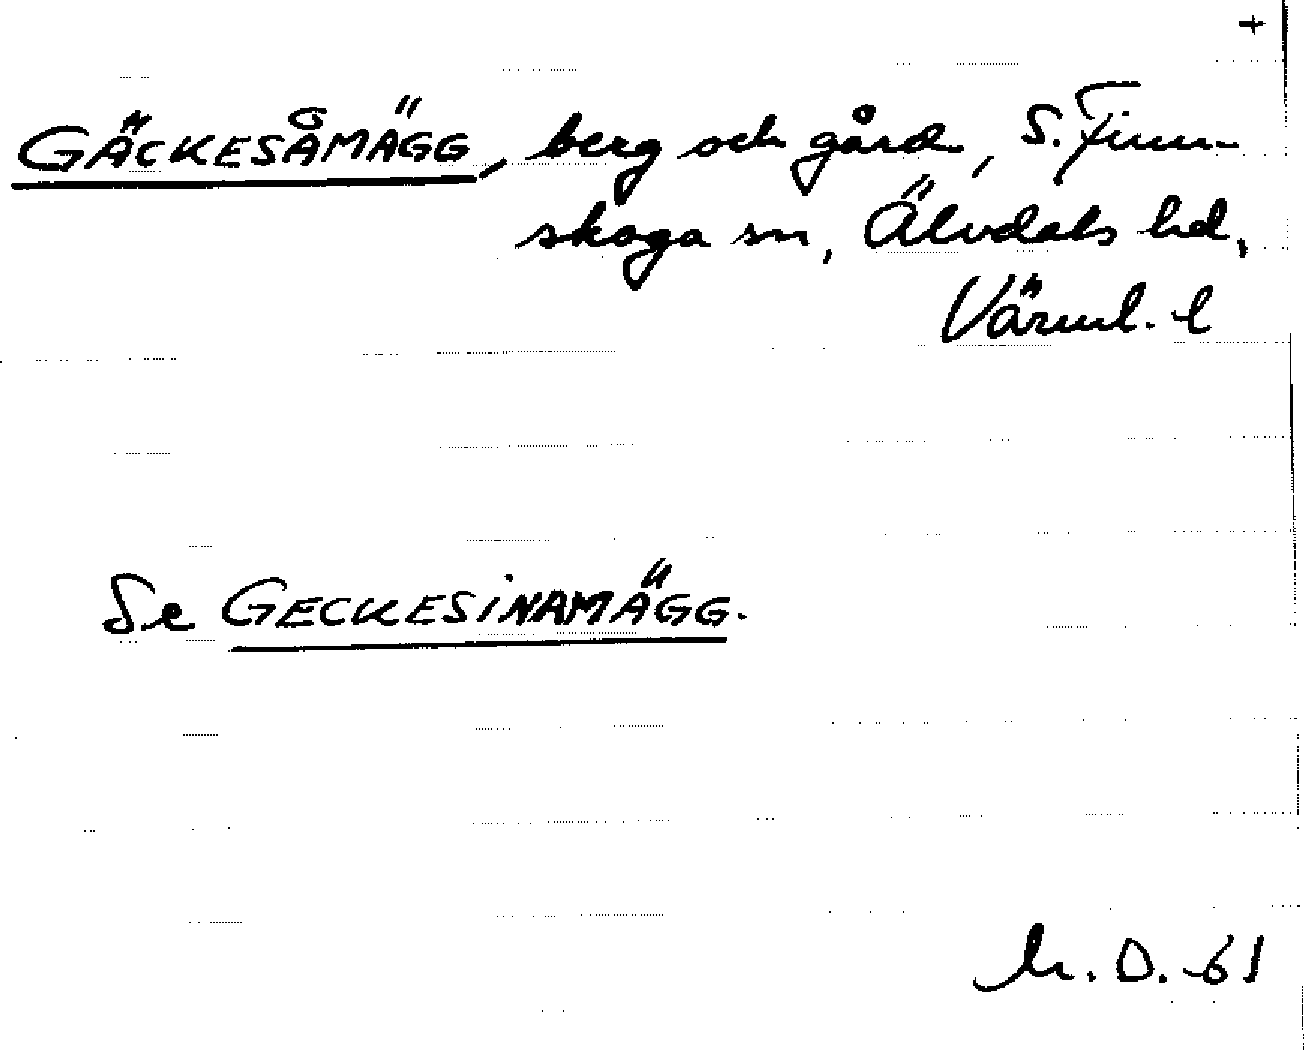 +
GÄCKESÅMÄGG, berg och gård, S. Finn-
skoga sn, Älvdals hd,
Värml. l
Se GECKESINAMÄGG.
M. D. -61